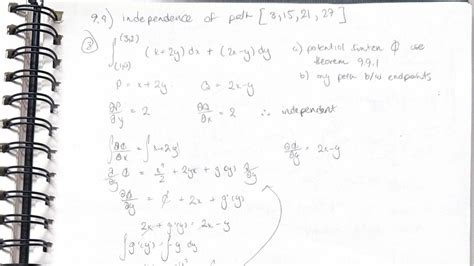 9.9) independence of path [3,15,21,27]
③ ∫(1,0)(3,2) (x+2y)dx + (2x-y)dy
a) potential function ϕ use theorem 9.9.1
b) any path b/w endpoints
P = x+2y Q = 2x-y
∂P/∂y = 2 ∂Q/∂x = 2 ∴ independent
∫ ∂ϕ/∂x = ∫ x+2y ∂ϕ/∂y = 2x-y
∂/∂y ϕ = x²/2 + 2yx + g(y) ∂/∂y
∂ϕ/∂y = 0 + 2x + g'(y)
2x + g'(y) = 2x-y
∫ g'(y) = ∫ y dy